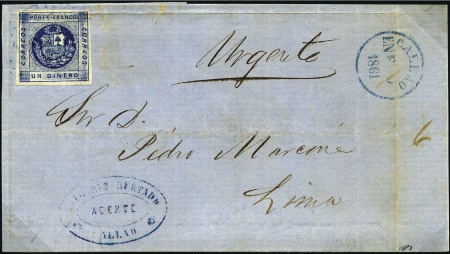 PORTE FRANCO
CORREOS
CORREOS
UN DINERO
Urgente
CALLAO
ENE
1861
Sor D.
Pedro Marcone
Lima
6
HURTADO
AGENTE
CALLAO